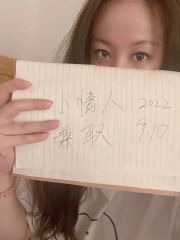 小情人 2022
9.10